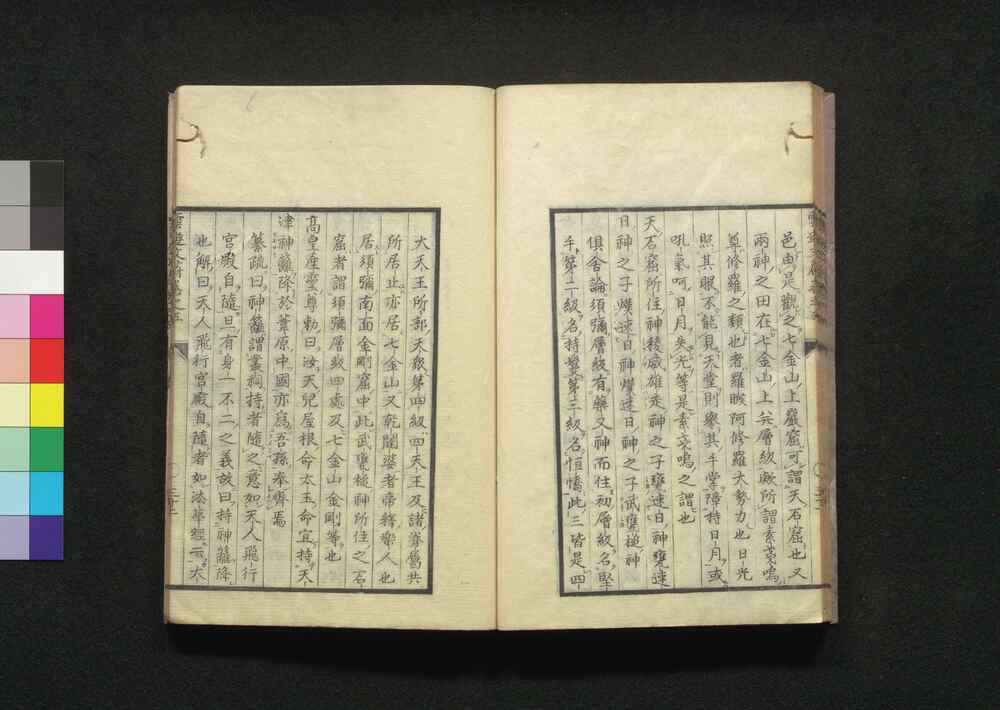 邑由是觀之七金山上巖窟可謂天石窟也又
兩神之田在七金山上并層級厥所謂素戔嗚
尊修羅之類也者羅睺阿修羅大勢力也日光
照其眼不能見天堂則舉其手掌障持日月或
吼氣呵日月失光等是素戔嗚之謂也
天石窟所住神稜威雄走神之子甕速日神甕速
日神之子熯速日神熯速日神之子武甕槌神
俱舍論須彌層級有藥叉神而住初層級名堅
手第二級名持鬘第三級名恒憍此三皆是四
大天王所部天眾第四級四天王及諸眷屬共
所居止亦居七金山又乾闥婆者帝釋樂人也
居須彌南面金剛窟中此武甕槌神所住之石
窟者謂須彌層級四處及七金山金剛等也
高皇産靈尊勅曰汝天兒屋根命太玉命宜持天
津神籬降於葦原中國亦爲吾孫奉齋焉
纂疏曰神籬謂叢祠持者隨之意如天人飛行
宮殿自隨且有身一不二之義故曰持神籬降
也解曰天人飛行宮殿自隨者如法華經云大